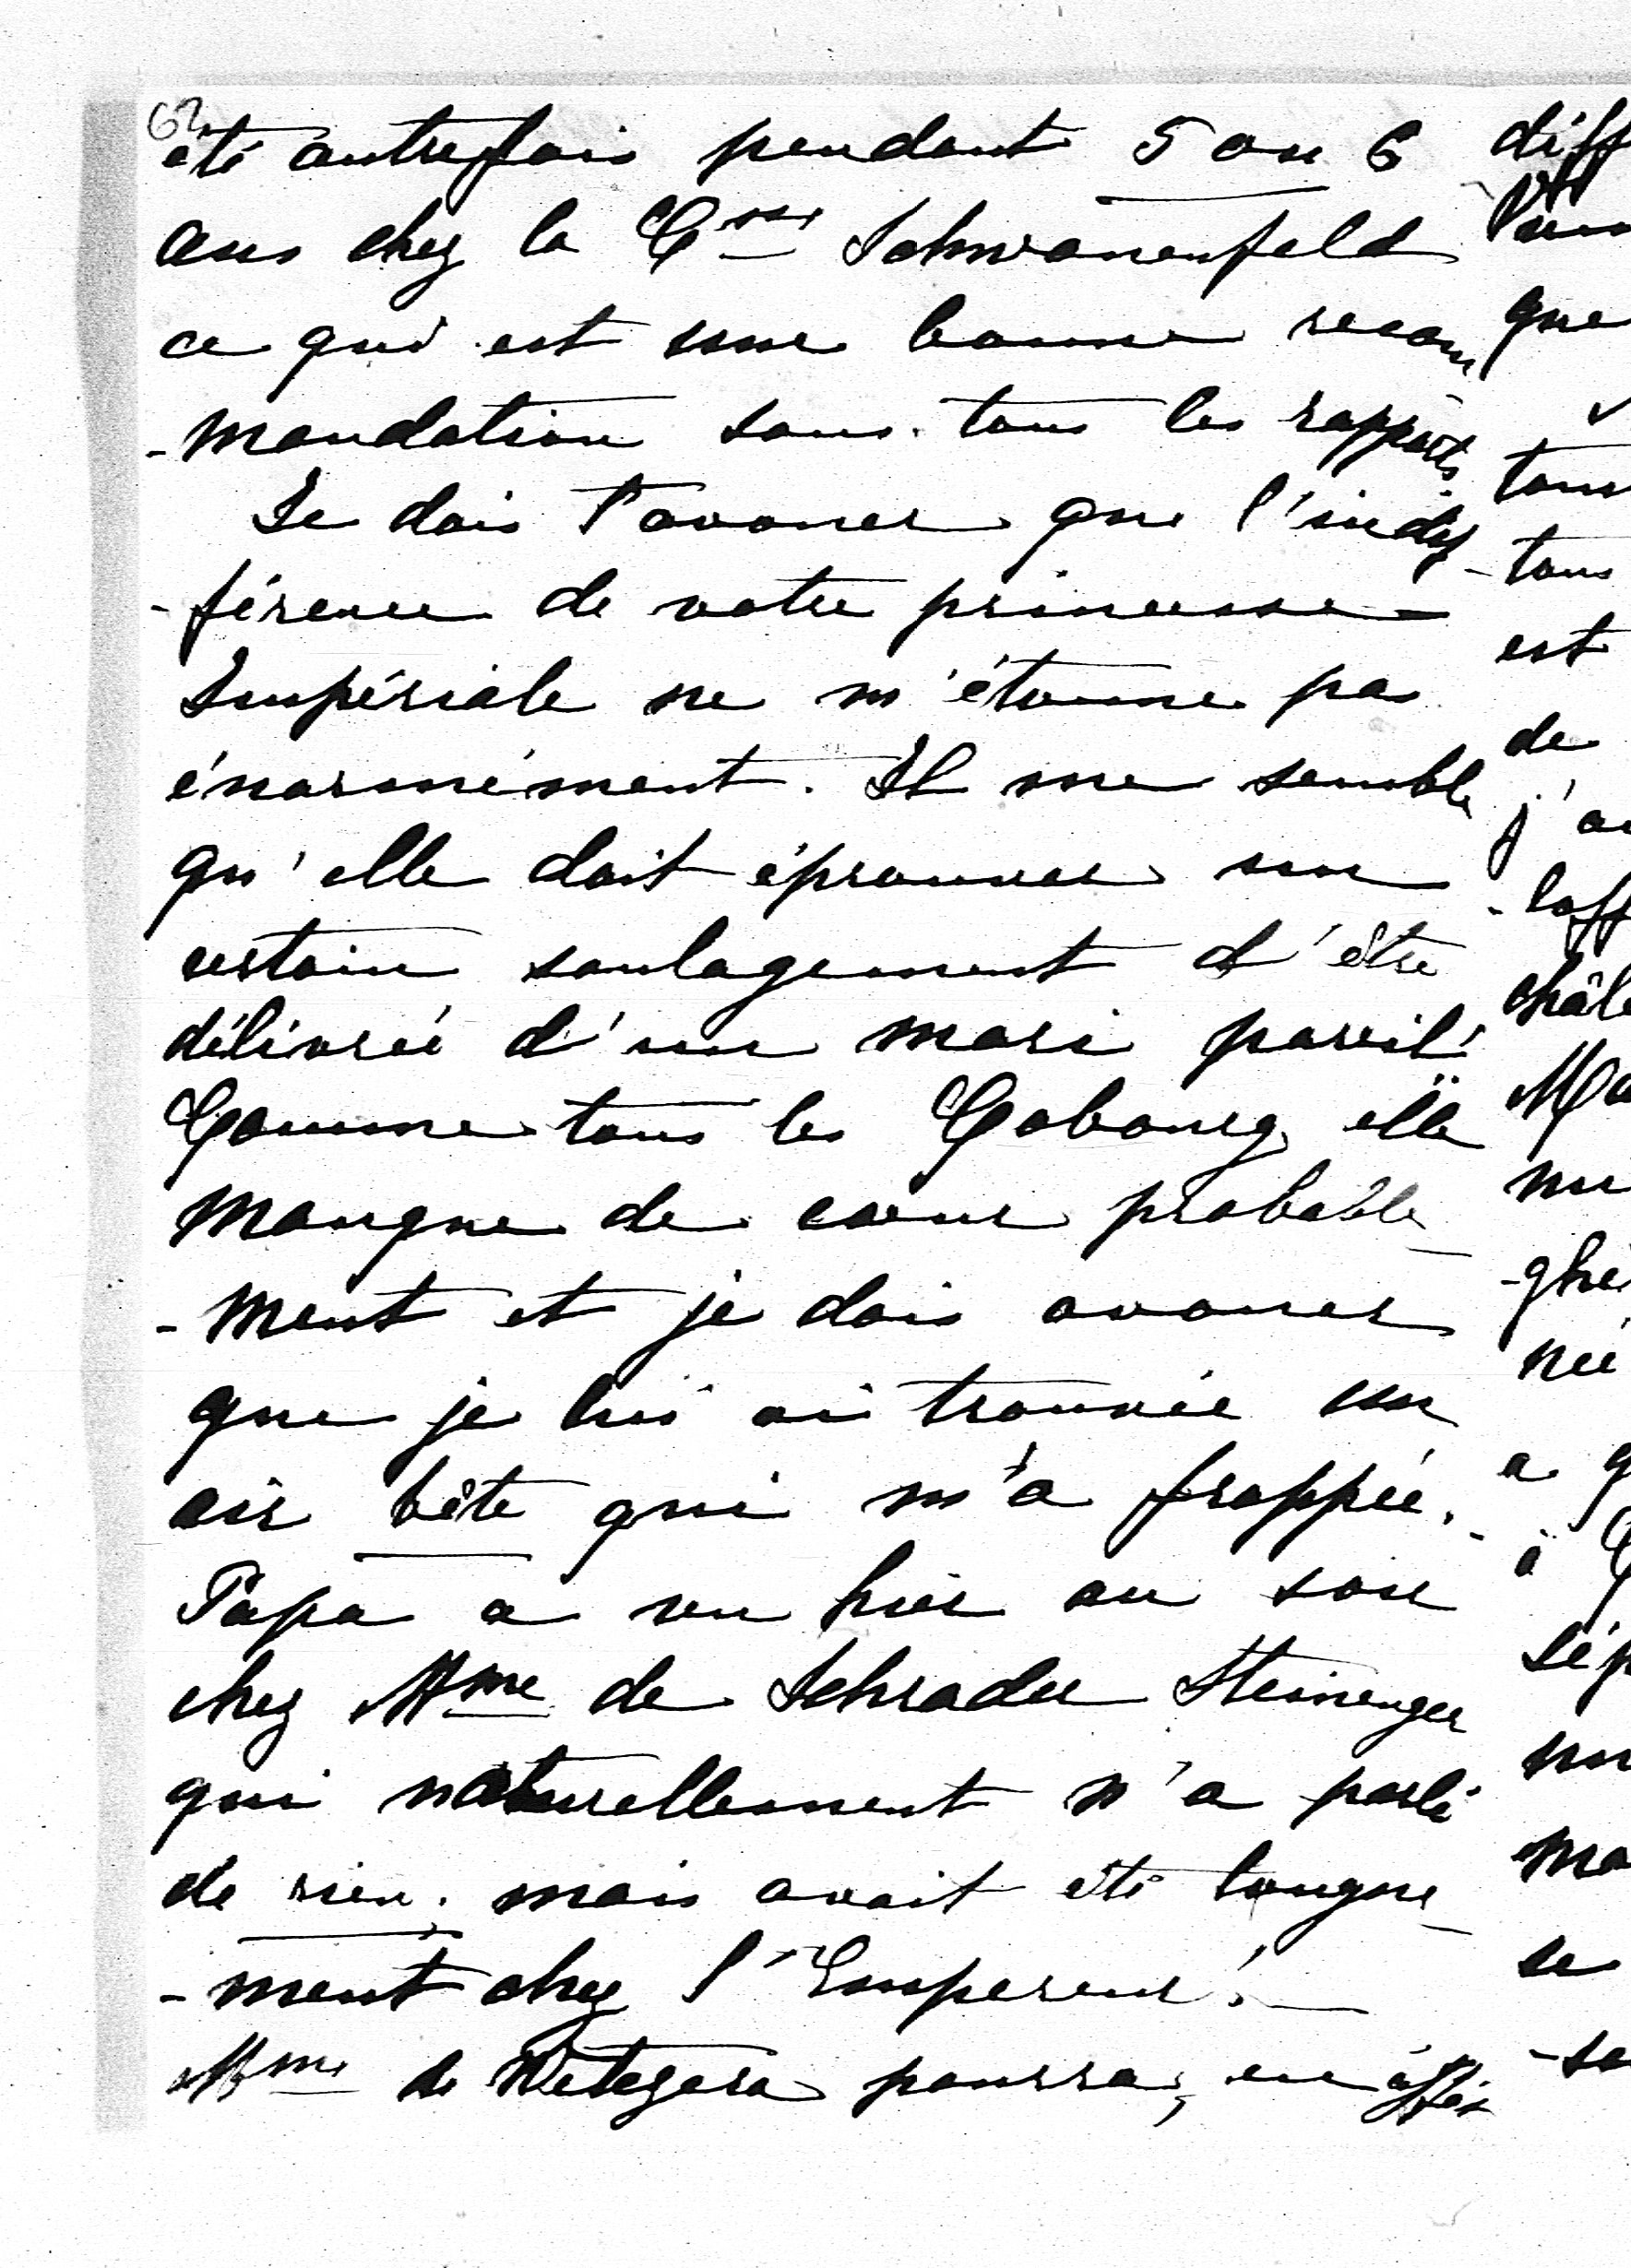 62
été autrefois pendant 5 ou 6
ans chez la Csse Schwanenfeld
ce qui est une bonne recom
-mandation sous tous les rapports
Je dois t'avouer que l'indif
-férence de votre princesse
Impériale ne m'étonne pas
énormément. Il me semble
qu'elle doit éprouver un
certain soulagement d'être
délivrée d'un mari pareil!
Comme tous les Cobourg elle
manque de cœur probable
-ment et je dois avouer
que je lui ai trouvée un
air bête qui m'a frappée.
Papa a vu hier au soir
chez Mme de Schrader Steinenger
qui naturellement n'a parlé
de rien, mais avait été longue
-ment chez l'Empereur!
Mme de Vetzera pourra, en effet
diff
que
tous
-tous
est
de
j'ai
-laff
châle
Ma
-ghé
née
a q
à
sép
ma
se
-se